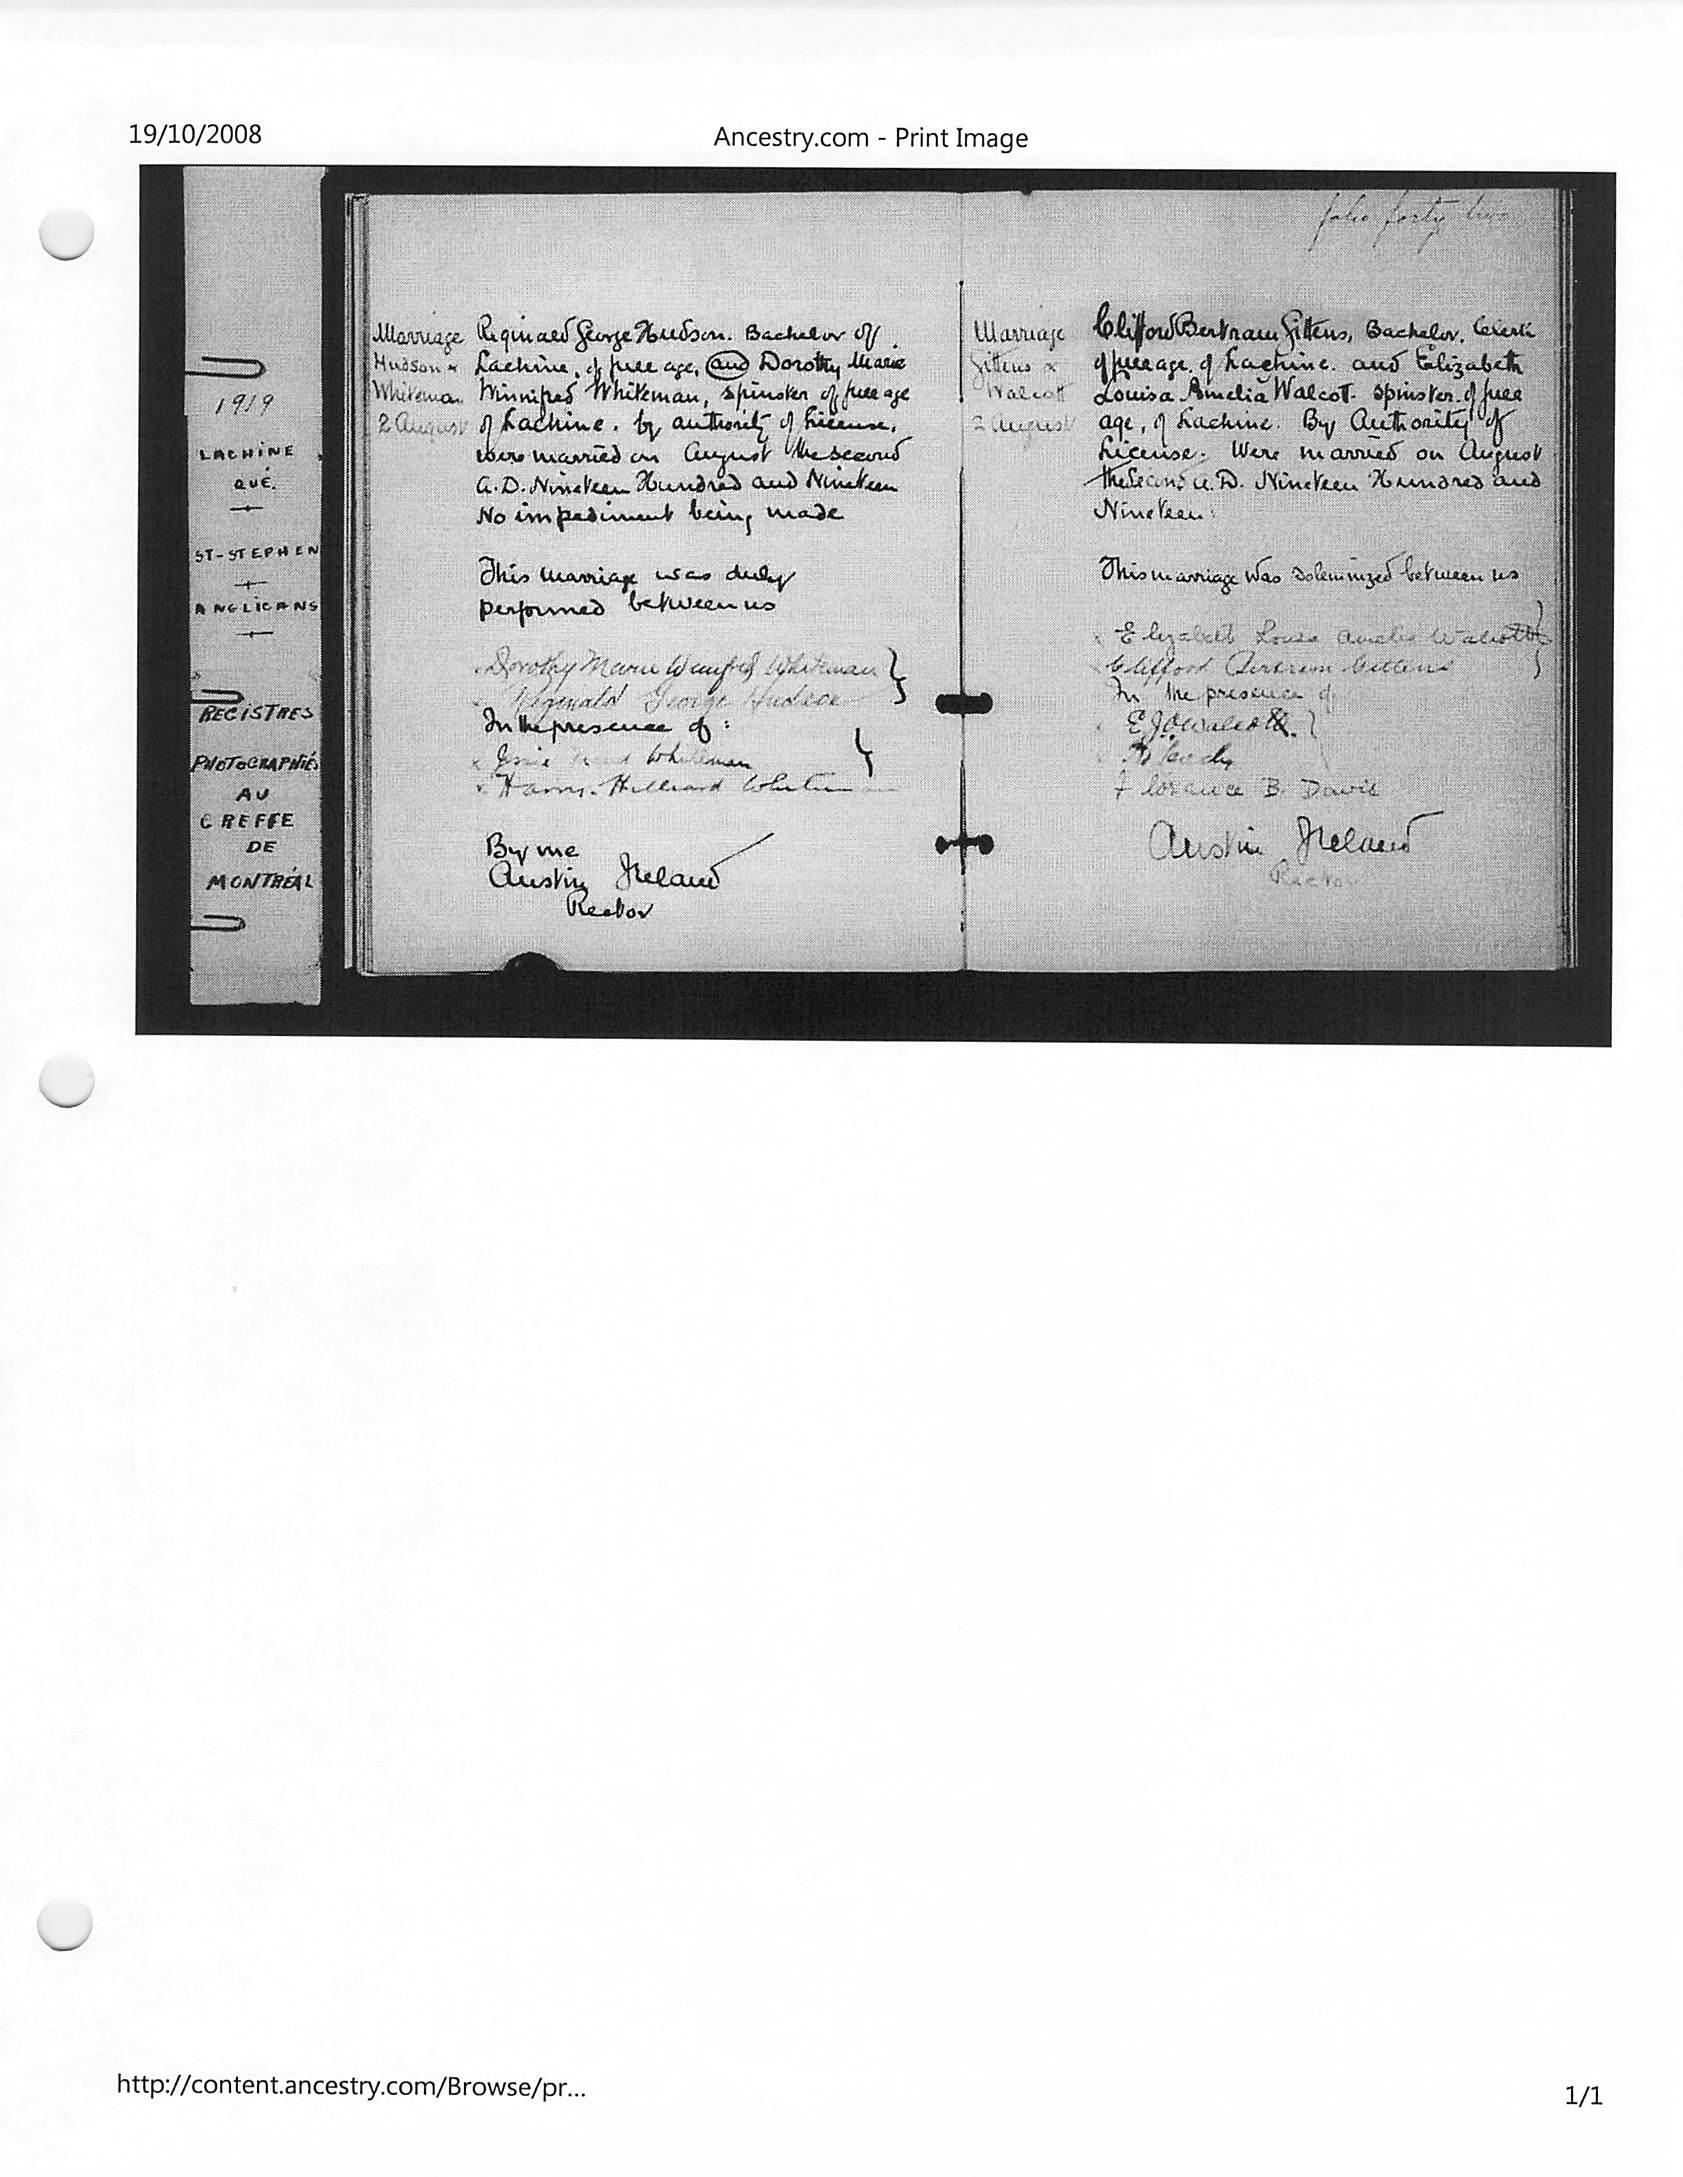 19/10/2008
Ancestry.com - Print Image
1919
LACHINE
QUÉ.
ST-STEPHEN
ANGLICANS
REGISTRES
PHOTOGRAPHIÉS
AU
GREFFE
DE
MONTRÉAL
Marriage
Hudson &
Whiteman
2 August
Reginald George Hudson. Bachelor of
Lachine, of full age, and Dorothy Marie
Winnifred Whiteman, spinster of full age
of Lachine. by authority of License,
were married on August the second
A.D. Nineteen Hundred and Nineteen
No impediment being made
This marriage was duly
performed between us
Dorothy Marie Winifred Whiteman
Reginald George Hudson
In the presence of:
Jessie Whiteman
Hilliard
By me
Austin Ireland
Rector
folio forty two
Marriage
Gittens &
Walcott
2 August
Clifford Bertram Gittens, Bachelor. Clerk
of full age. of Lachine. and Elizabeth
Louisa Amelia Walcott. spinster. of full
age, of Lachine. By Authority of
License. Were married on August
the Second A.D. Nineteen Hundred and
Nineteen.
This marriage was solemnized between us
Elizabeth Louisa Amelia Walcott
Clifford Bertram Gittens
In the presence of
Florence B. Davis
Austin Ireland
Rector
http://content.ancestry.com/Browse/pr...
1/1